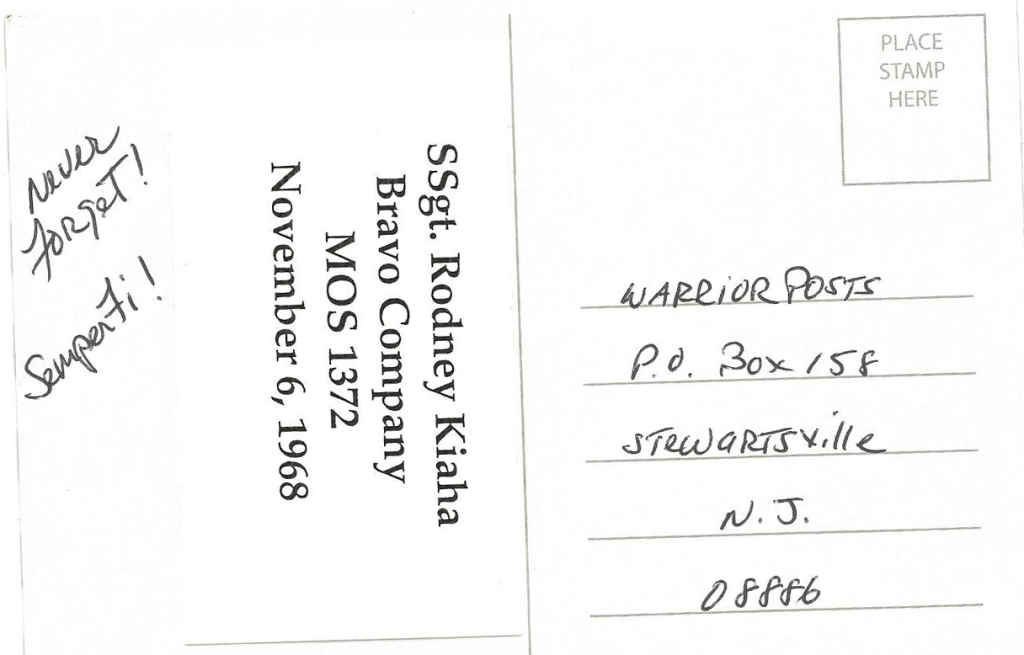 Never
Forget!
Semper Fi!
SSgt. Rodney Kiaha
Bravo Company
MOS 1372
November 6, 1968
PLACE
STAMP
HERE
WARRIOR POSTS
P.O. Box 158
STEWARTSVille
N.J.
08886